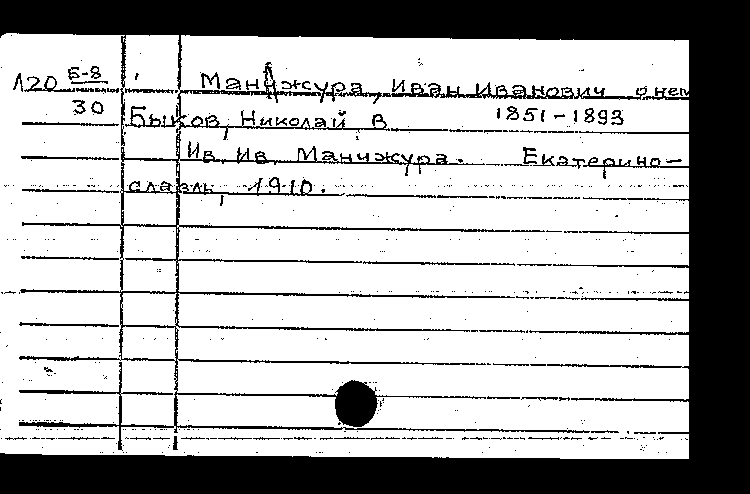 120 Б-8 Манджура, Иван Иванович о нем
30 Быков, Николай В 1851-1893
Ив. Ив. Манчжура. Екатерино-
славль, 1910.